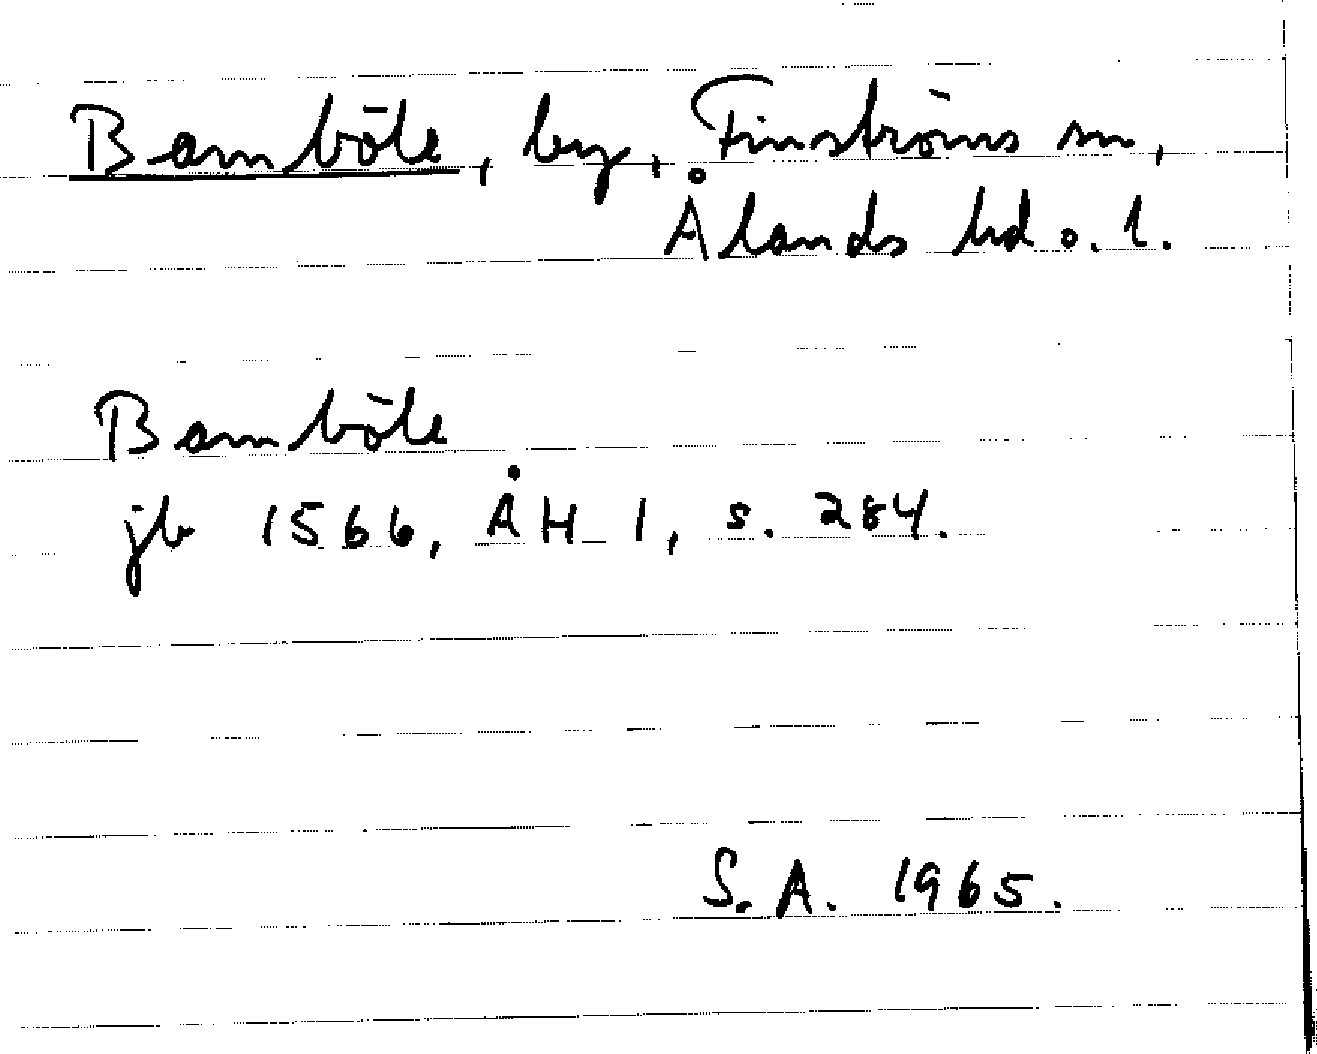 Bamböle, by, Finströms sn,
Ålands hd o. l.
Bamböle
jb 1566, ÅH 1, s. 284.
S. A. 1965.